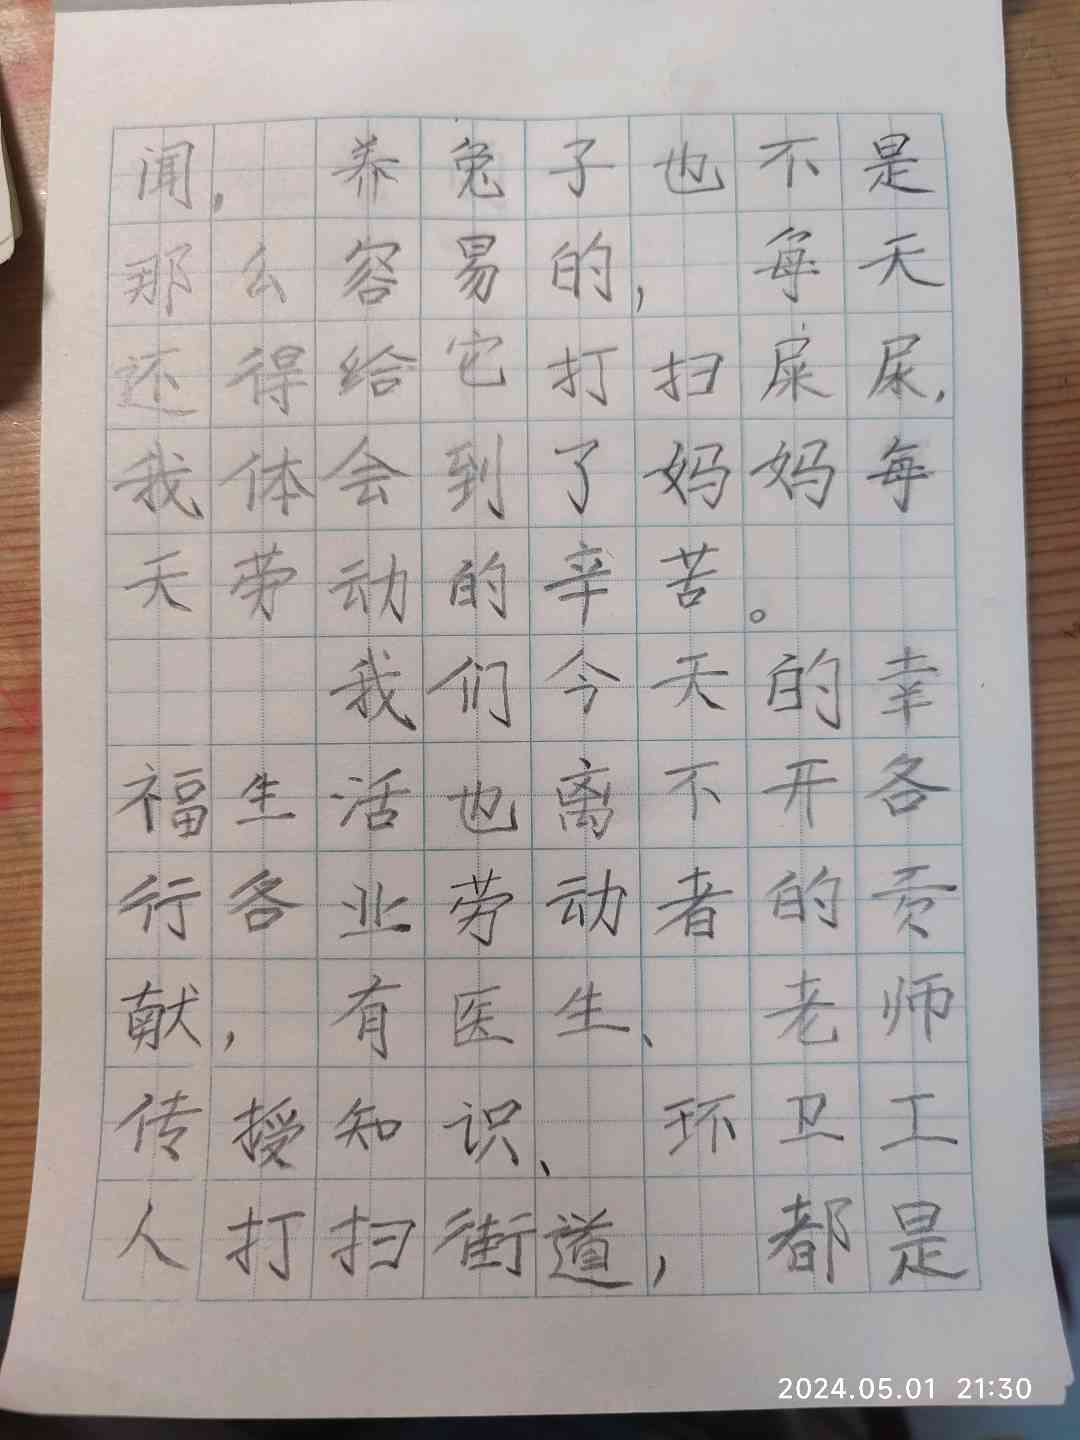 闻，养兔子也不是
那么容易的，每天
还得给它打扫屎尿，
我体会到了妈妈每
天劳动的辛苦。
我们今天的幸
福生活也离不开各
行各业劳动者的贡
献，有医生、老师
传授知识、环卫工
人打扫街道，都是
2024.05.01 21:30